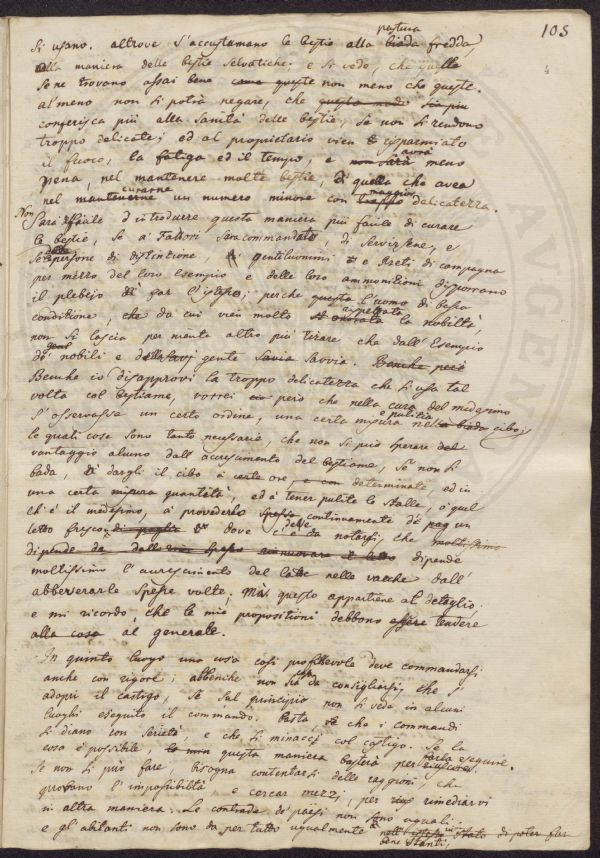 105
si usano. altrove s'accustumano le bestie alla biada pastura fredda,
alla maniera delle bestie selvatiche: e si vede, che quelle
se ne trovano assai bene come queste non meno che queste.
al meno non si potrà negare, che questo modo sia più
conferisca più alla sanità delle bestie, se non si rendono
troppo delicate; ed al proprietario vien risparmiato
il fuoco, la fatiga ed il tempo, e non sarà avrà meno
pena, nel mantenere molte bestie, di quella che avea
nel mantenerne curarne un numero minore con troppo maggior delicatezza.
Non sarà facile d'introdurre questa maniera più facile di curare
le bestie, se a' Fattori sarà commandato, di servirsene, e
se persone di distintione, gentiluomini e Preti di campagna
per mezzo del loro esempio e delle loro ammonitioni disporranno
il plebejo di far l'istesso; perche questo l'uomo di bassa
conditione, che da cui vien molto rispettata la nobiltà,
non si lascia per niente altro più tirare che dall'esempio
de' nobili e della gente savia. Benche però
Benche io disapprovi la troppo delicatezza che si usa tal
volta col bestiame, vorrei però che nella cura del medesimo
s'osservasse un certo ordine, una certa misura e pulitia nel cibo;
le quali cose sono tanto necessarie, che non si può sperare del
vantaggio alcuno dall'accrescimento del bestiame, se non si
bada, di dargli il cibo a certe ore, e con determinate, ed in
una certa misura quantità, ed a tener pulite le stalle, o quel
ch'è il medesimo, a provederlo spesso continuamente d'un
letto fresco di paglia dove c'è da notarsi, che moltissimo
dipende da dalle spesso rinnovare il letto dipende
moltissimo l'accrescimento del latte nelle vacche dall'
abbeverarle spesse volte; Ma questo appartiene al detaglio;
e mi ricordo, che le mie propositioni debbono essere tendere
alla cosa al generale.
In quinto luogo una cosa così profittevole deve commandarsi
anche con rigore; abbenche non sia da consigliarsi, che si
adopri il castigo, se sul principio non si veda in alcuni
luoghi eseguito il commando. Basta che i commandi
si diano con serietà, e che si minacci col castigo. Se la
cosa è possibile, questa maniera basterà per farla eseguire.
Se non si può fare, bisogna contentarsi delle raggioni, che
provano l'impossibiltà e cercar mezzi, per rimediarvi
in altra maniera. Le contrade de' paesi non sono uguali:
e gl'abitanti non sono da per tutto ugualmente nell'istesso stato di poter far
bene stanti;